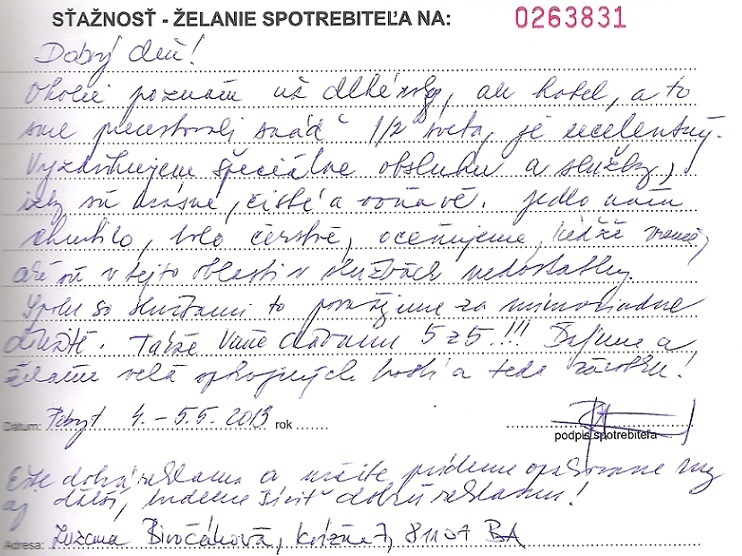 SŤAŽNOSŤ - ŽELANIE SPOTREBITEĽA NA: 0263831
Dobrý deň!
Okolie poznám už dlhé roky, ale hotel, a to
sme precestovali snáď 1/2 sveta, je excelentný.
Vyzdvihujeme špeciálne obsluhu a služby,
izby sú krásne, čisté a voňavé. Jedlo nám
chutilo, bolo čerstvé, oceňujeme, keďže vieme,
aké sú v tejto oblasti v službách nedostatky.
Spolu so službami to považujeme za mimoriadne
dôležité. Takže Vám dávame 5 z 5.!!! Ďakujeme a
želáme veľa spokojných hostí a teda zárobku!
Dátum: Pobyt 4. - 5.5. 2013 rok
podpis spotrebiteľa
Ešte dobrá reklama a určite prídeme opakovane my
aj ďalší, budeme šíriť dobrú reklamu!
Adresa: Zuzana Bivočáková, Krížna 7, 81107 BA